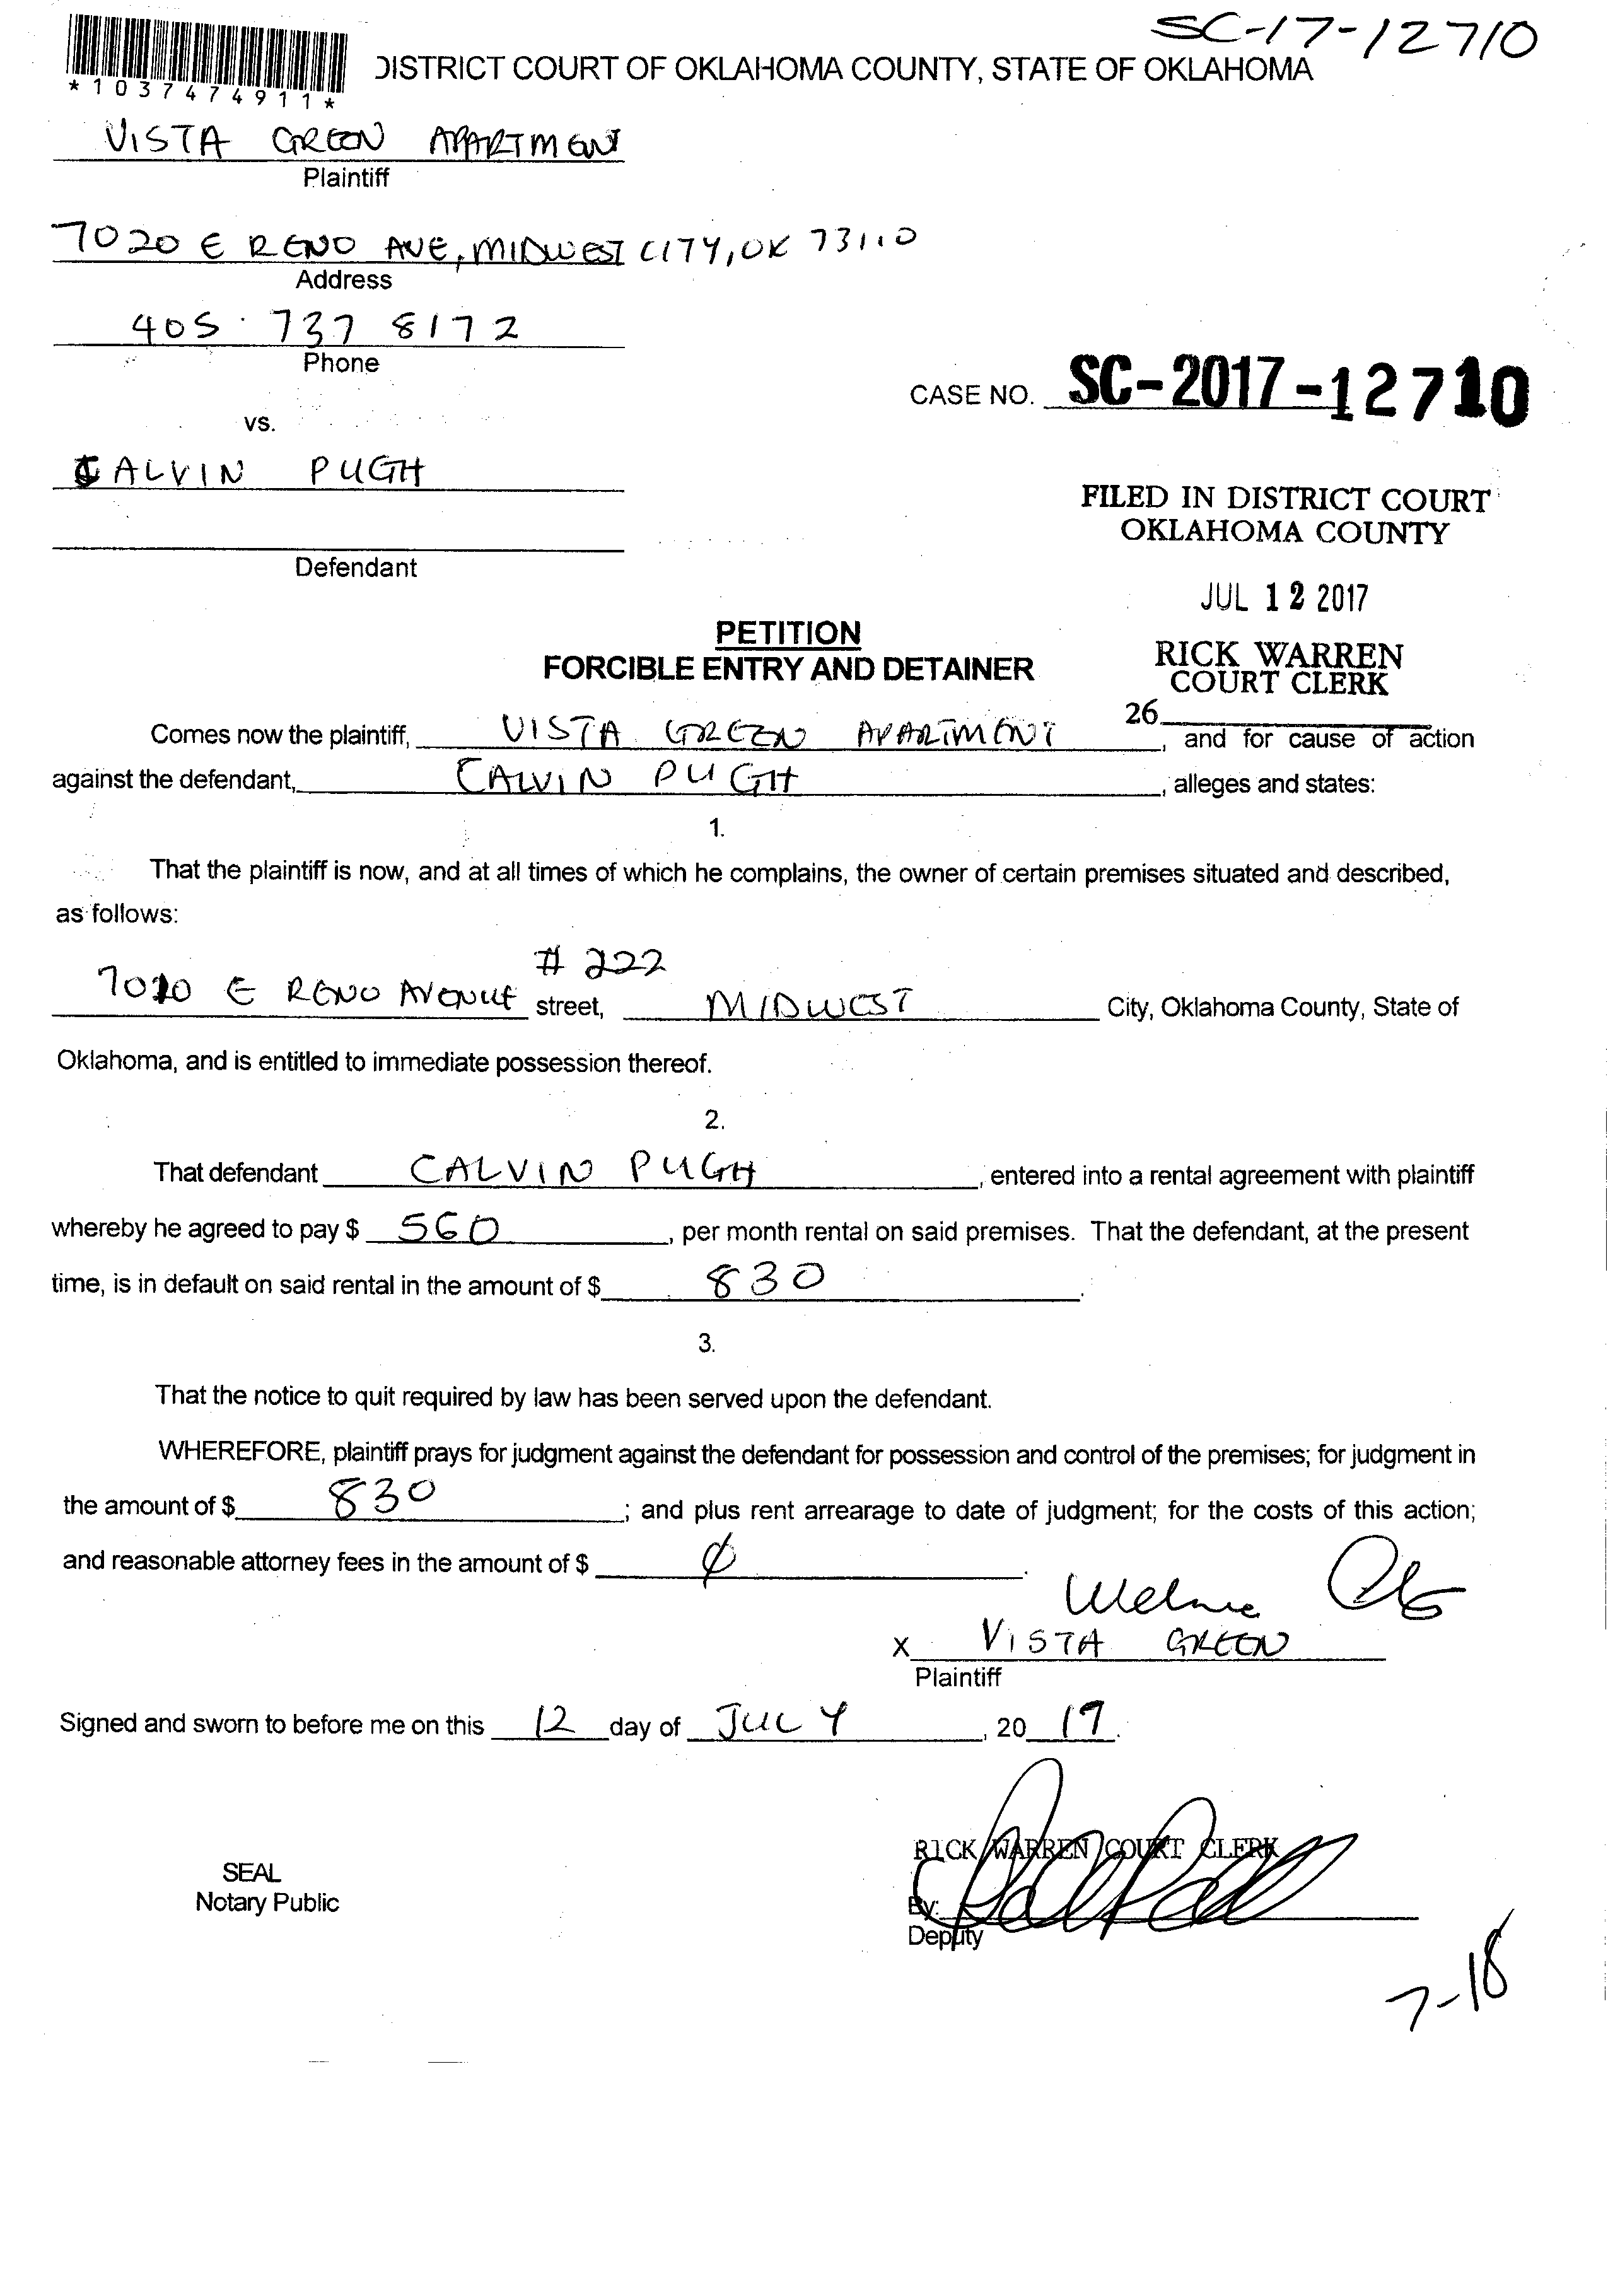 SC-17-12710
*1037474911*
DISTRICT COURT OF OKLAHOMA COUNTY, STATE OF OKLAHOMA
VISTA GREEN APARTMENT
Plaintiff
7020 E RENO AVE, MIDWEST CITY, OK 73110
Address
405 737 8172
Phone
CASE NO. SC-2017-12710
vs.
CALVIN PUGH
FILED IN DISTRICT COURT
OKLAHOMA COUNTY
Defendant
JUL 12 2017
PETITION
FORCIBLE ENTRY AND DETAINER
RICK WARREN
COURT CLERK
26
Comes now the plaintiff, VISTA GREEN APARTMENT, and for cause of action
against the defendant, CALVIN PUGH, alleges and states:
1.
That the plaintiff is now, and at all times of which he complains, the owner of certain premises situated and described,
as follows:
# 222
7020 E RENO AVENUE street, MIDWEST City, Oklahoma County, State of
Oklahoma, and is entitled to immediate possession thereof.
2.
That defendant CALVIN PUGH, entered into a rental agreement with plaintiff
whereby he agreed to pay $ 560, per month rental on said premises. That the defendant, at the present
time, is in default on said rental in the amount of $ 830.
3.
That the notice to quit required by law has been served upon the defendant.
WHEREFORE, plaintiff prays for judgment against the defendant for possession and control of the premises; for judgment in
the amount of $ 830; and plus rent arrearage to date of judgment; for the costs of this action;
and reasonable attorney fees in the amount of $ 0.
X VISTA GREEN
Plaintiff
Signed and sworn to before me on this 12 day of JULY, 20 17.
RICK WARREN COURT CLERK
SEAL
Notary Public
By:
Deputy
7-18